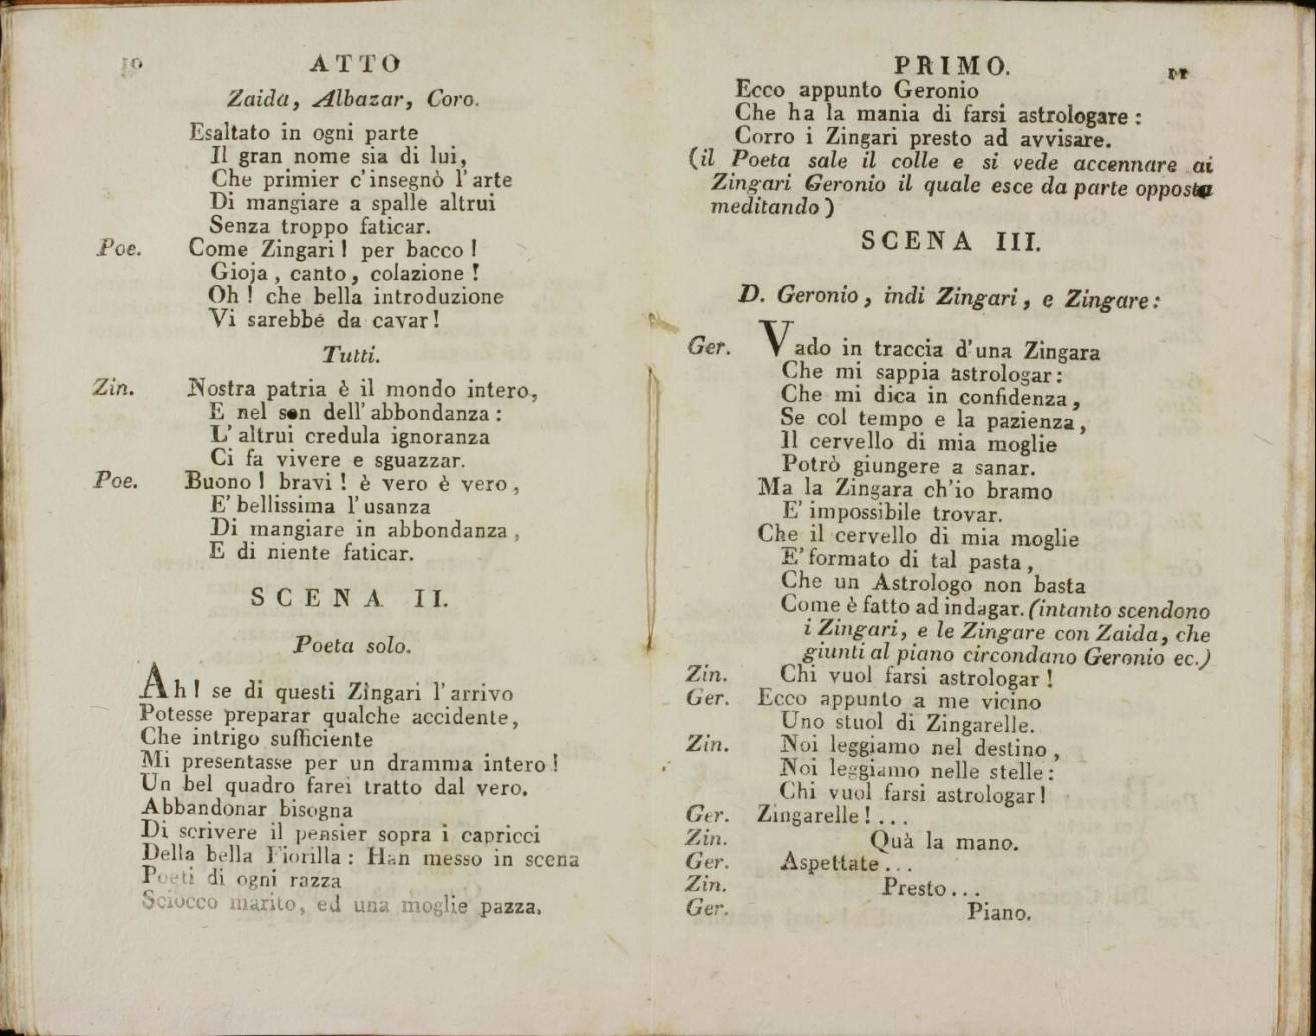 10 ATTO
Zaida, Albazar, Coro.
Esaltato in ogni parte
Il gran nome sia di lui,
Che primier c'insegnò l'arte
Di mangiare a spalle altrui
Senza troppo faticar.
Poe. Come Zingari! per bacco!
Gioja, canto, colazione!
Oh! che bella introduzione
Vi sarebbe da cavar!
Tutti.
Zin. Nostra patria è il mondo intero,
E nel sen dell'abbondanza:
L'altrui credula ignoranza
Ci fa vivere e sguazzar.
Poe. Buono! bravi! è vero è vero,
E' bellissima l'usanza
Di mangiare in abbondanza,
E di niente faticar.
SCENA II.
Poeta solo.
Ah! se di questi Zingari l'arrivo
Potesse preparar qualche accidente,
Che intrigo sufficiente
Mi presentasse per un dramma intero!
Un bel quadro farei tratto dal vero.
Abbandonar bisogna
Di scrivere il pensier sopra i capricci
Della bella Fiorilla: Han messo in scena
Poeti di ogni razza
Sciocco marito, ed una moglie pazza.
PRIMO. 11
Ecco appunto Geronio
Che ha la mania di farsi astrologare:
Corro i Zingari presto ad avvisare.
(il Poeta sale il colle e si vede accennare ai
Zingari Geronio il quale esce da parte opposta
meditando)
SCENA III.
D. Geronio, indi Zingari, e Zingare:
Ger. Vado in traccia d'una Zingara
Che mi sappia astrologar:
Che mi dica in confidenza,
Se col tempo e la pazienza,
Il cervello di mia moglie
Potrò giungere a sanar.
Ma la Zingara ch'io bramo
E' impossibile trovar.
Che il cervello di mia moglie
E' formato di tal pasta,
Che un Astrologo non basta
Come è fatto ad indagar. (intanto scendono
i Zingari, e le Zingare con Zaida, che
giunti al piano circondano Geronio ec.)
Zin. Chi vuol farsi astrologar!
Ger. Ecco appunto a me vicino
Uno stuol di Zingarelle.
Zin. Noi leggiamo nel destino,
Noi leggiamo nelle stelle:
Chi vuol farsi astrologar!
Ger. Zingarelle!...
Zin. Quà la mano.
Ger. Aspettate...
Zin. Presto...
Ger. Piano.